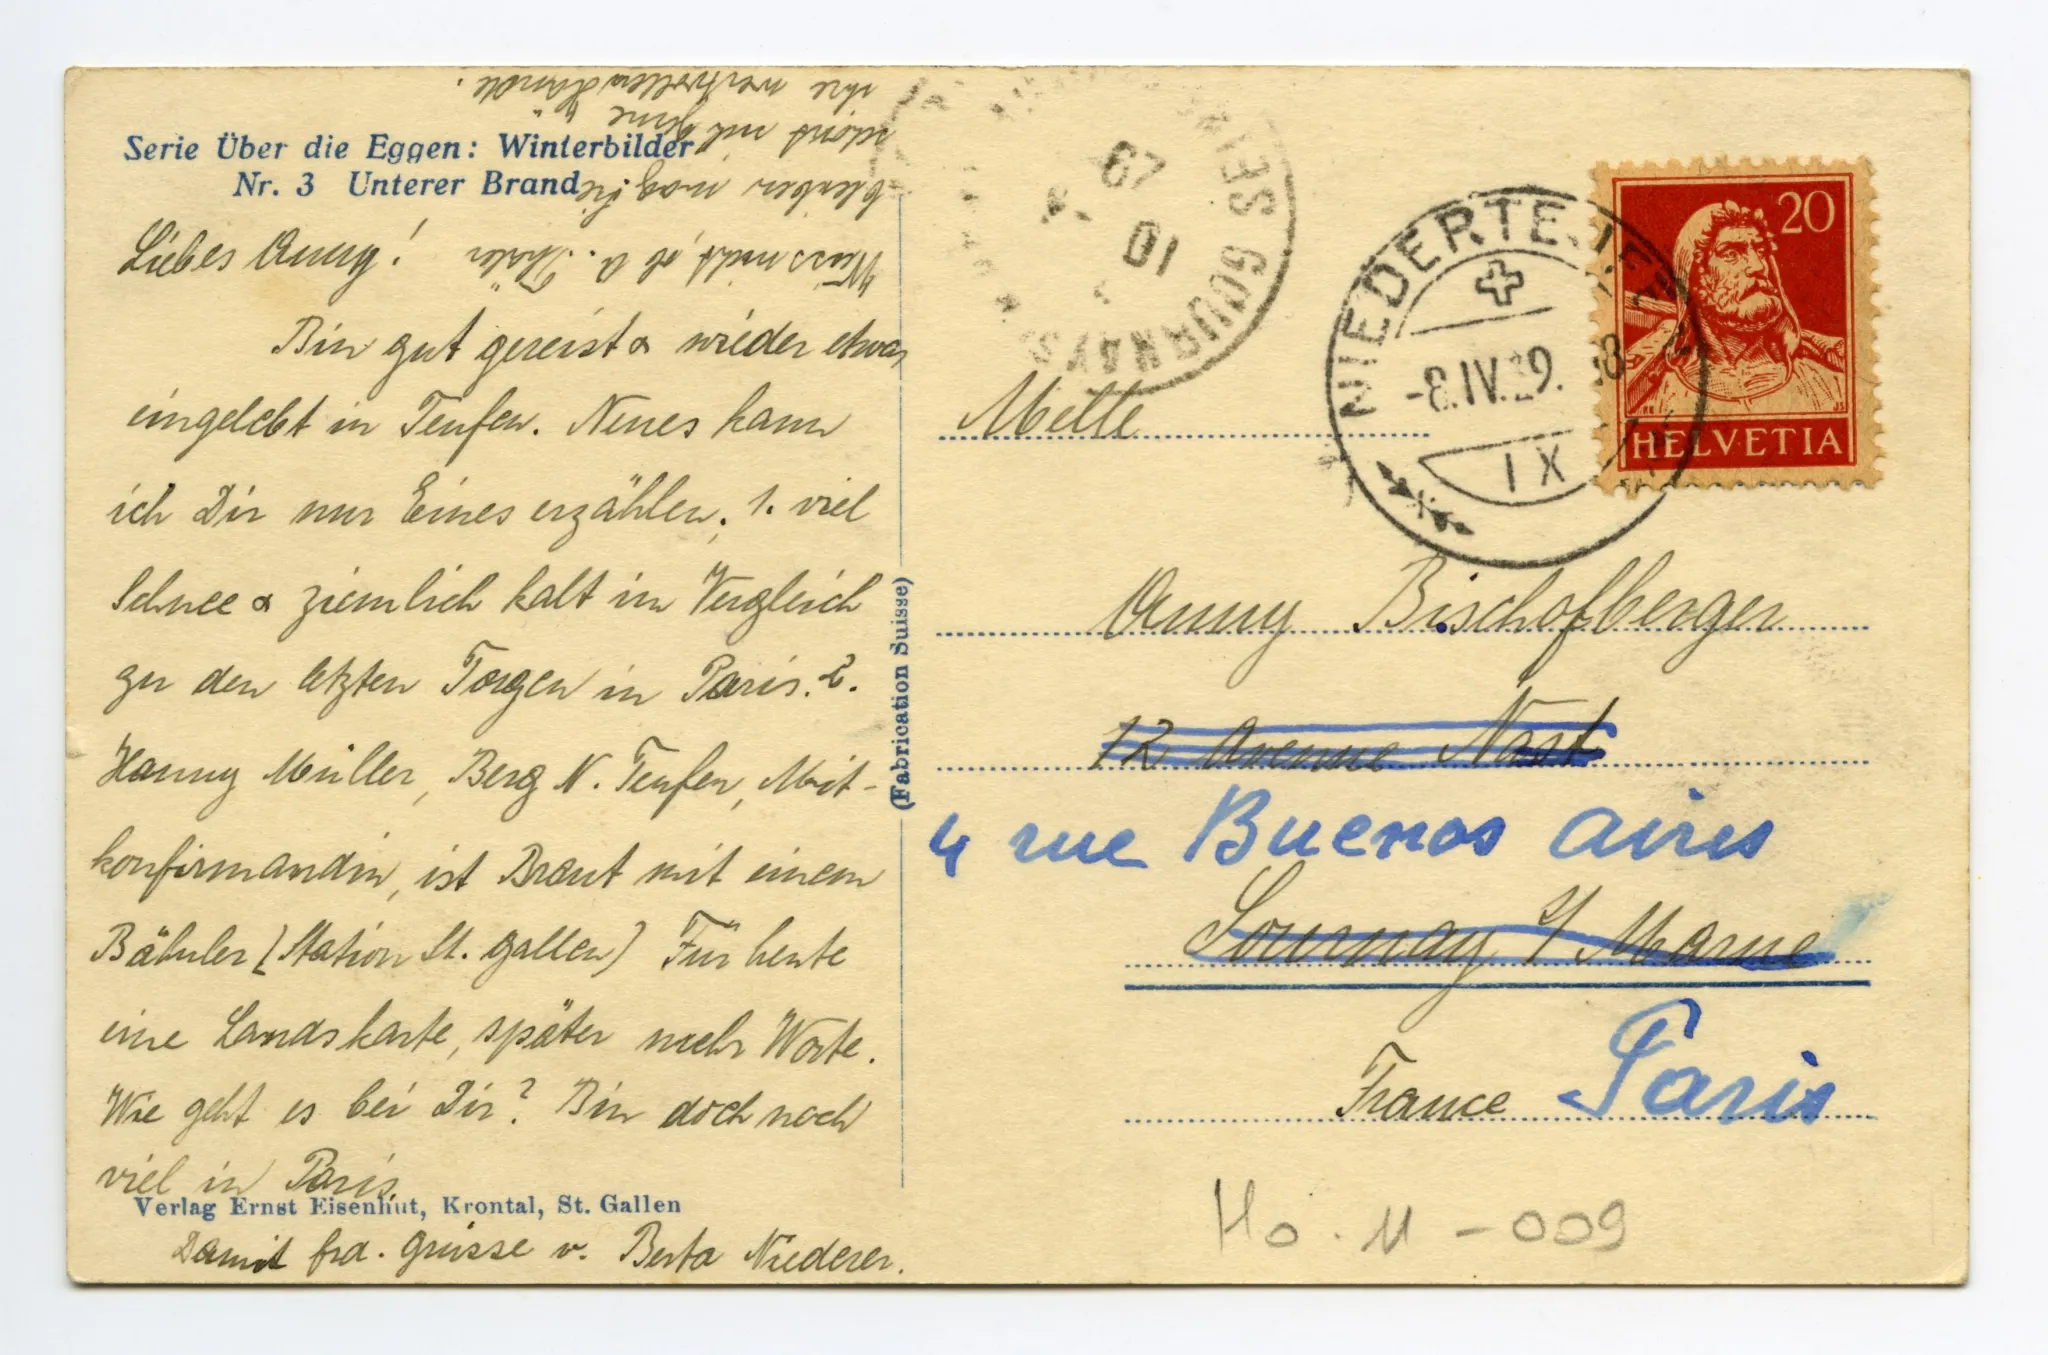 Serie Über die Eggen: Winterbilder
Nr. 3 Unterer Brand
Liebes Anny!
Bin gut gereist & wieder etwas
eingelebt in Teufen. Neues kann
ich Dir nur Eines erzählen. 1. viel
Schnee & ziemlich kalt im Vergleich
zu den letzten Tagen in Paris. 2.
Hanny Müller, Berg N. Teufen, Mit-
konfirmandin, ist Braut mit einem
Bähnler (Station St. Gallen) Für heute
eine Landskarte, später mehr Worte.
Wie geht es bei Dir? Bin doch noch
viel in Paris.
Verlag Ernst Eisenhut, Krontal, St. Gallen
Damit frd. Grüsse v. Berta Niederer.
Weiss nicht, ob A. Thäler
bleiben mag, sie
schont nur gerne
ihre wertvollen Hände.
(Fabrication Suisse)
GOURNAY S
10
29
NIEDERTEUFEN
-8.IV.29.
IX
20
HELVETIA
Melle
Anny Bischofberger
12 Avenue Nast
4 rue Buenos Aires
Gournay s/Marne
France Paris
Ho. M - 009